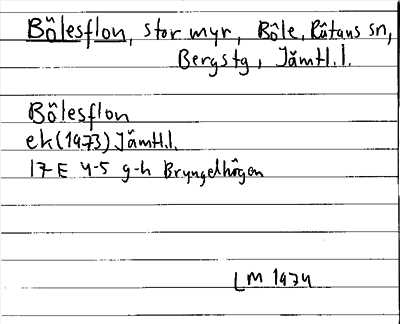 Bölesflon, stor myr, Böle, Rätans sn,
Bergstg, Jämtl.l.
Bölesflon
ek (1973) Jämtl.l.
17 E 4-5 g-h Bryngelhögen
LM 1974